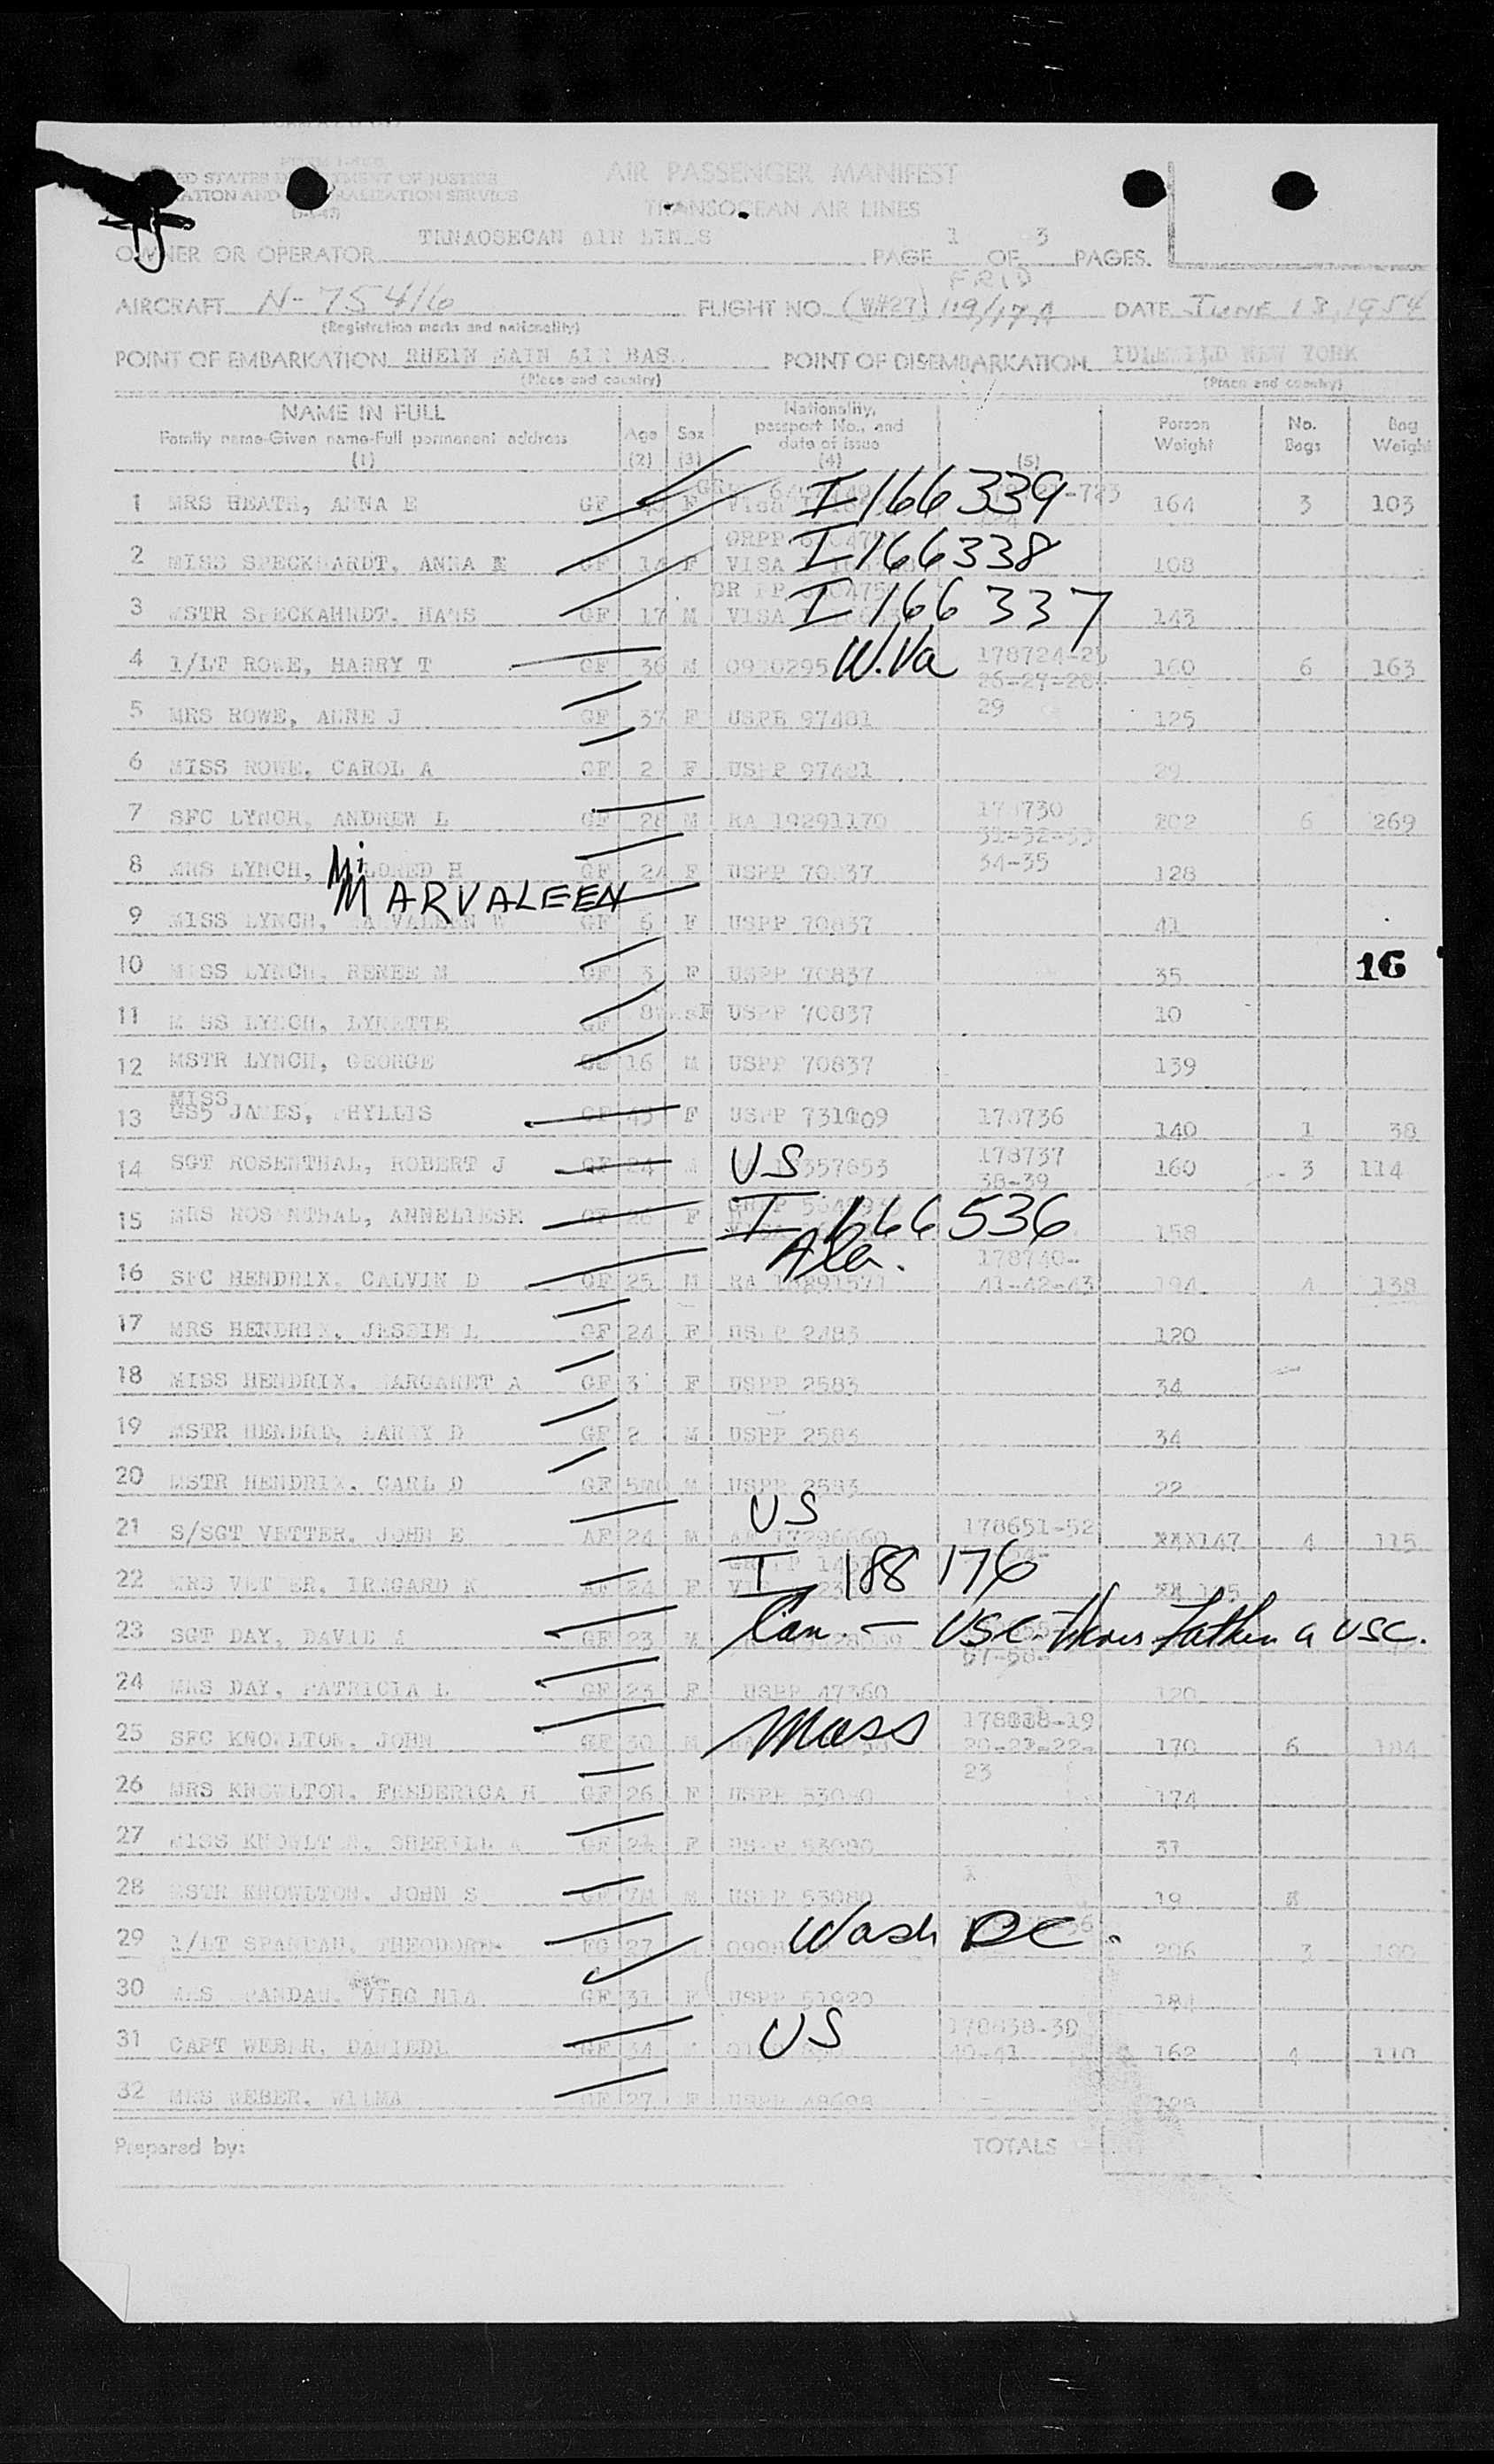 AIR PASSENGER MANIFEST
UNITED STATES DEPARTMENT OF JUSTICE
IMMIGRATION AND NATURALIZATION SERVICE
TRANSOCEAN AIR LINES
OWNER OR OPERATOR TRNAOSECAN AIR LINES PAGE 1 OF 3 PAGES.
FRID
AIRCRAFT N-75416 FLIGHT NO. (WH27) 119/17A DATE JUNE 18, 1954
(Registration marks and nationality)
POINT OF EMBARKATION RHEIN MAIN AIR BAS POINT OF DISEMBARKATION IDLEWILD NEW YORK
(Place and country) (Place and country)
NAME IN FULL Age Sex Nationality, passport No., and date of issue Person Weight No. Bags Bag Weight
Family name-Given name-Full permanent address
(1) (2) (3) (4) (5)
1 MRS HEATH, ANNA E GF F I-166339 -723 164 3 103
2 MISS SPECKHARDT, ANNA E GF 14 F VISA I-166338 108
3 MSTR SPECKAHRDT, HANS GF 17 M VISA I-166337 143
4 1/LT ROWE, HARRY T GF 36 M 0920295 W.Va 178724-25 160 6 163
26-27-28-
5 MRS ROWE, ANNE J GF 37 F USPP 97481 29 125
6 MISS ROWE, CAROL A GF 2 F USPP 97481 29
7 SFC LYNCH, ANDREW L GF 28 M RA 19291170 178730 202 6 269
31-32-33
8 MRS LYNCH, MILDRED H GF 24 F USPP 70837 34-35 128
MARVALEEN
9 MISS LYNCH, MARVALEEN W GF 6 F USPP 70837 41
10 MISS LYNCH, RENEE M GF 3 F USPP 70837 35 16
11 MISS LYNCH, LYNETTE GF F USPP 70837 10
12 MSTR LYNCH, GEORGE GF 16 M USPP 70837 139
MISS
13 GS5 JAMES, PHYLLIS GF 43 F USPP 731109 178736 140 1 38
14 SGT ROSENTHAL, ROBERT J GF 24 M US 357653 178737 160 3 114
38-39
15 MRS ROSENTHAL, ANNELIESE GF 26 F I-166536 158
Ala.
16 SFC HENDRIX, CALVIN D GF 25 M RA 18291571 178740- 194 4 138
41-42-43
17 MRS HENDRIX, JESSIE L GF 24 F USPP 2483 120
18 MISS HENDRIX, MARGARET A GF 3 F USPP 2583 34
19 MSTR HENDRD, LARRY D GF 2 M USPP 2583 34
20 MSTR HENDRIX, CARL D GF 5MO M USPP 2583 22
US
21 S/SGT VETTER, JOHN E AF 24 M AF 17296660 178651-52 147 4 115
22 MRS VETTER, IRMGARD K AF 24 F I-188176
23 SGT DAY, DAVID GF 23 M Can. - USC. thru Father a USC.
24 MRS DAY, PATRICIA L GF 23 F USPP 47360 120
25 SFC KNOWLTON, JOHN GF 30 M Mass 178818-19 170 6 184
20-21-22-
23
26 MRS KNOWLTON, FREDERICA H GF 26 F USPP 53080 174
27 MISS KNOWLTON, SHERILL A GF F USPP 53080
28 MSTR KNOWLTON, JOHN S GF 7M M USPP 53080 19
29 1/LT SPANDAU, THEODORE 27 Wash DC. 206 3 100
30 MRS SPANDAU, VIRGINIA GF 31 F USPP 51920 184
31 CAPT WEBER, DANIEDL GF 34 US 178838-39 162 4 110
40-41
32 MRS WEBER, WILMA GF 27 F USPP 48698 128
Prepared by: TOTALS